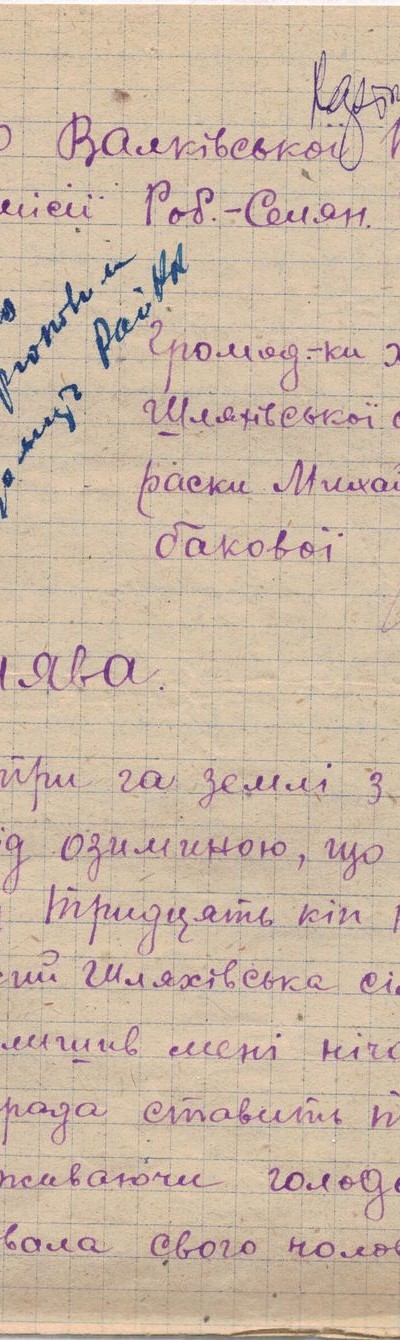 о Валківської
місії Роб.-Селян.
Громад-ки х
Шляхівської с
раски Михай
бакової
ява.
три га землі з
ід озиминою, що
Тридцять кіп
ский Шляхівська сіл
лишив мені нічо
рада ставить п
живаючи голодо
вала свого чолов